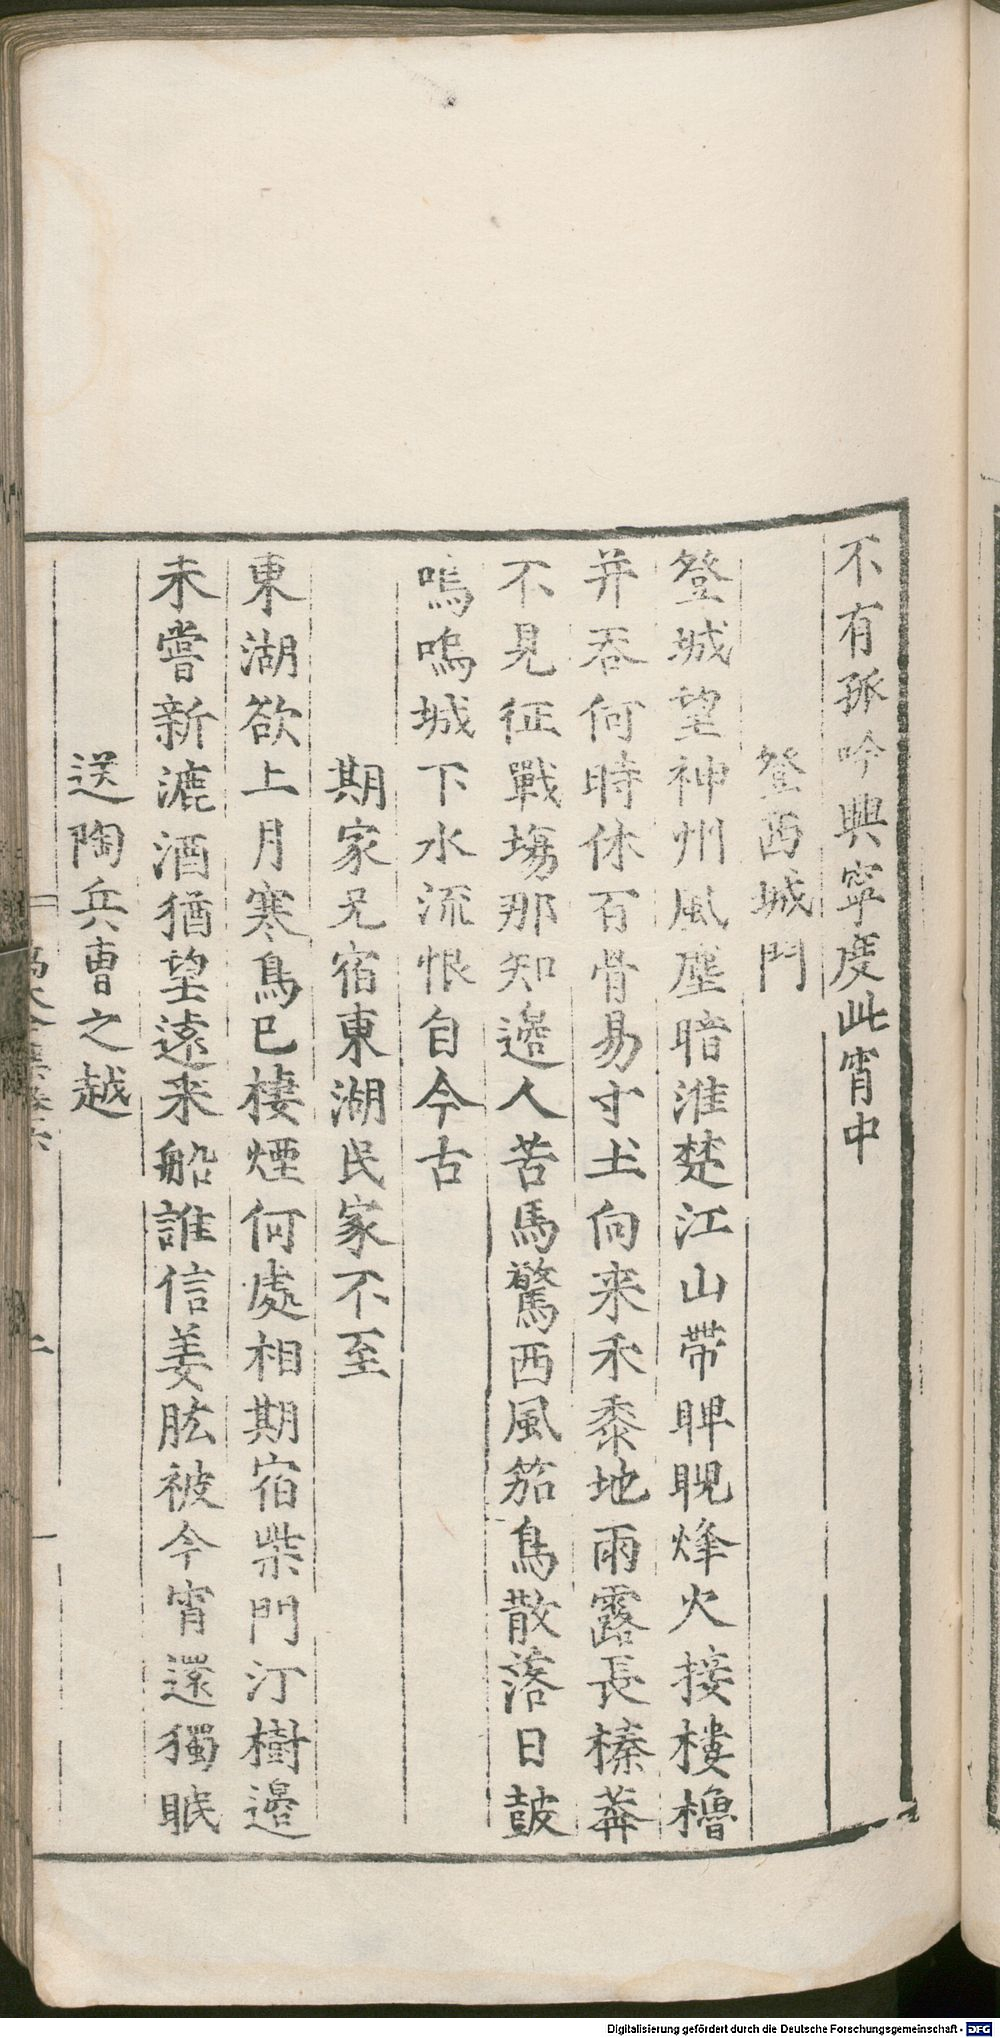 不有孤吟興寧度此宵中
登西城門
登城望神州風塵暗淮楚江山帶睥睨烽火接樓櫓
并吞何時休百骨易寸土向来禾黍地雨露長榛莽
不見征戰塲那知邊人苦馬驚西風笳鳥散落日鼓
嗚嗚城下水流恨自今古
期家兄宿東湖民家不至
東湖欲上月寒鳥已棲煙何處相期宿柴門汀樹邊
未嘗新漉酒猶望遠来船誰信姜肱被今宵還獨眠
送陶兵曹之越
Digitalisierung gefördert durch die Deutsche Forschungsgemeinschaft - DFG